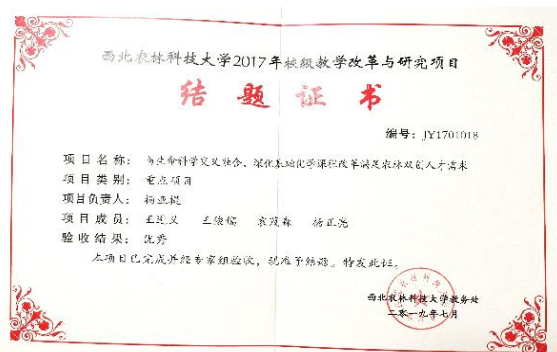 西北农林科技大学2017年校级教学改革与研究项目
结题证书
编号：JY1701018
项目名称：与生命科学交叉融合、深化基础化学课程改革满足农林双创人才需求
项目类别：重点项目
项目负责人：杨亚提
项目成员：王进义 王俊儒 袁茂森 杨正亮
验收结果：优秀
本项目已完成并经专家组验收，现准予结题。特发此证。
西北农林科技大学教务处
二零一九年七月